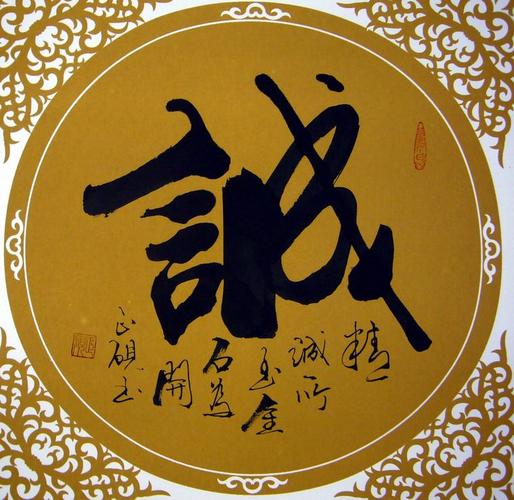 誠
精
誠所
至金
石為
開
正 书